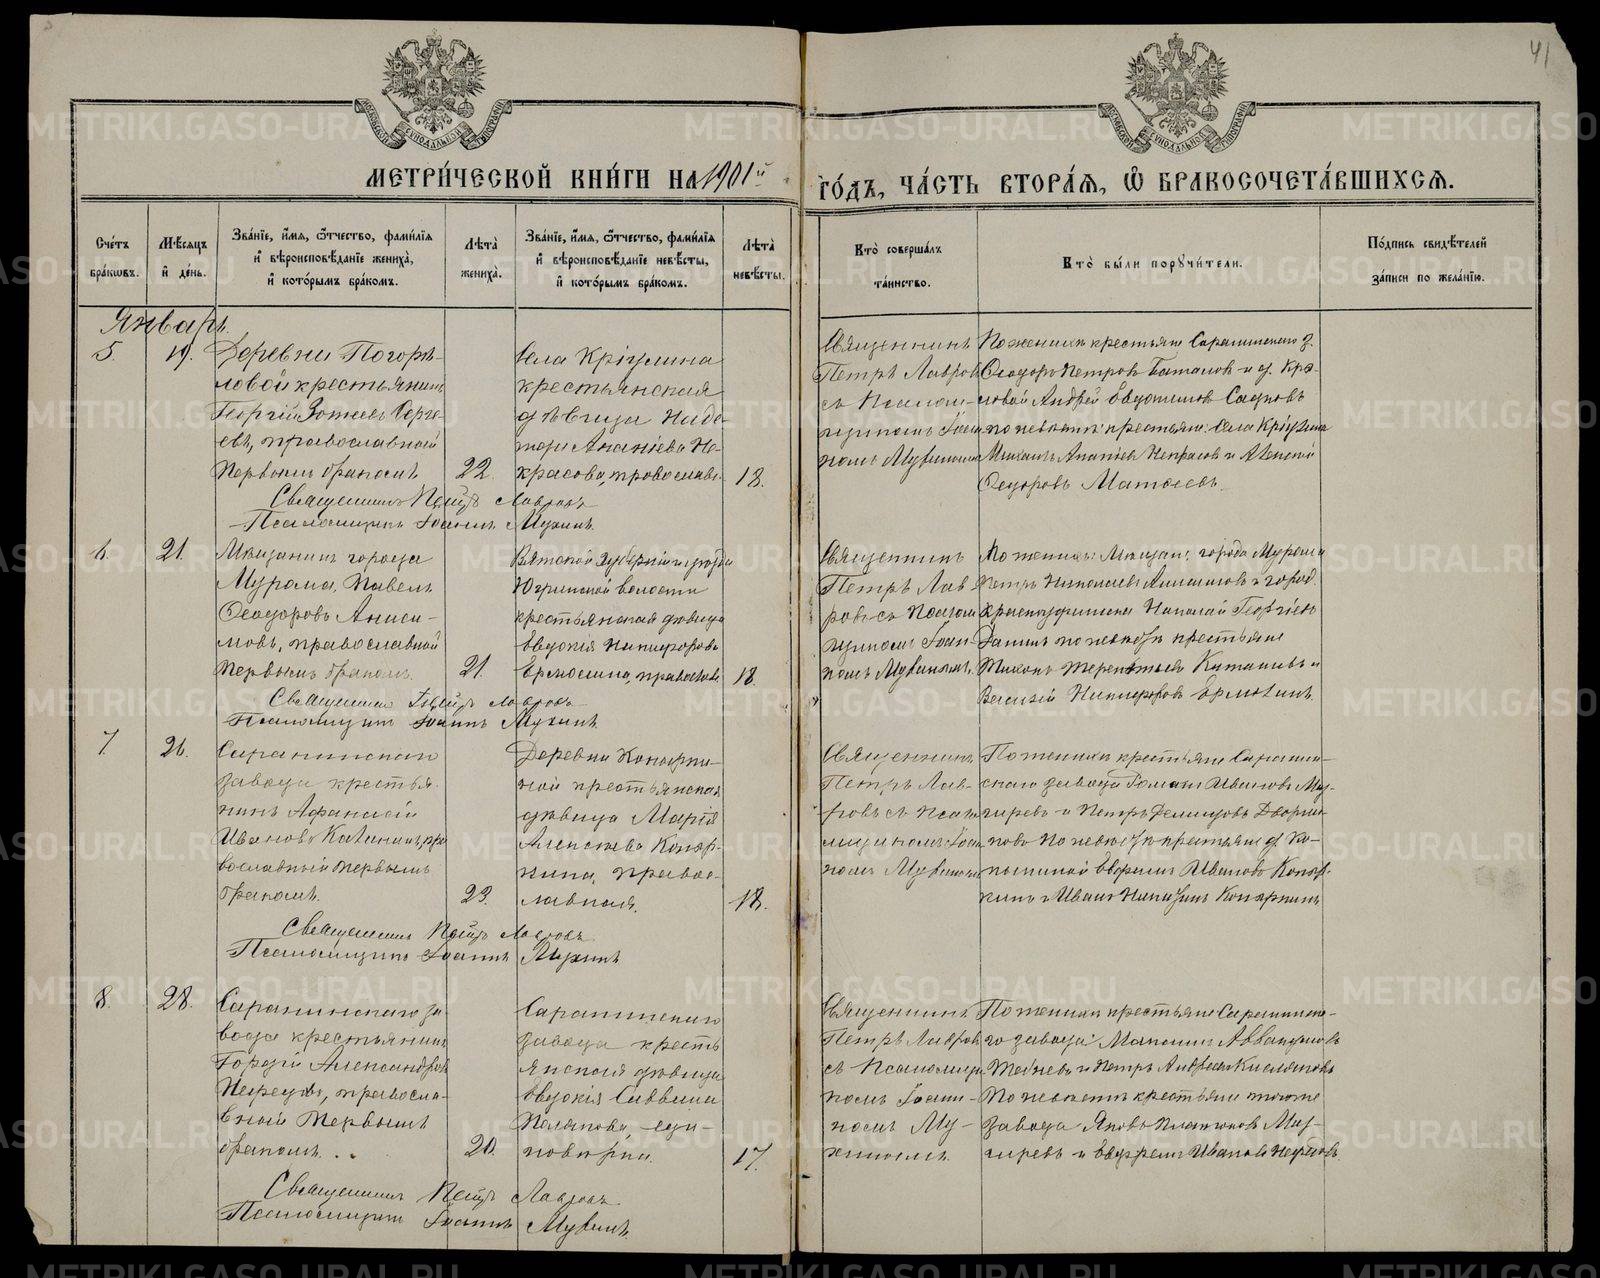 41
МОСКОВСКОЙ СѴНОДАЛЬНОЙ ТИПОГРАФІИ
МОСКОВСКОЙ СѴНОДАЛЬНОЙ ТИПОГРАФІИ
МЕТРИ́ЧЕСКОЙ КНИ́ГИ НА 1901й ГО́ДЪ, ЧА́СТЬ ВТОРА́Я, Ѡ БРАКОСОЧЕТА́ВШИХСЯ.
Сче́тъ бра́ковъ.
Мѣ́сяцъ и҆ де́нь.
Зва́нїе, и҆́мя, ѻ҆́тчество, фами́лїя и҆ вѣроисповѣ́данїе жениха̀, и҆ кото́рымъ бра́комъ.
Лѣта̀ жениха̀.
Зва́нїе, и҆́мя, ѻ҆́тчество, фами́лїя и҆ вѣроисповѣ́данїе невѣ́сты, и҆ кото́рымъ бра́комъ.
Лѣта̀ невѣ́сты.
Кто̀ соверша́лъ та́инство.
Кто̀ бы́ли поручи́тели.
По́дпись свидѣ́телей за́писи по жела́нїю.
Январь.
5.
19.
Деревни Погорѣ-
ловой крестьянинъ
Георгій Зотиевъ Серге-
евъ, православной
первымъ бракомъ
22.
Села Крiулина
крестьянская
дѣвица
Ананіева Не-
красова, православ-
18.
Священникъ
Петръ Лавровъ
съ Псалом-
щикомъ Іоан-
номъ Мухинымъ
По женихѣ крестьяне Саранинскаго з.
Ѳеодоръ Петровъ Баталовъ и д.
Андрей Евдокимовъ
по невѣстѣ: крестьяне: села Крiулина
Михаилъ Ананіевъ Некрасовъ и Алексѣй
Ѳедоровъ Матвеевъ.
Священникъ Петръ Лавровъ
Псаломщикъ Іоаннъ Мухинъ
6.
21.
Мѣщанинъ города
Мурома, Павелъ
Ѳеодоровъ Аниси-
мовъ, православной
первымъ бракомъ.
21.
Вятской губерніи и уѣзда
волости
крестьянская дѣвица
Евдокія Никифорова
Ермолина, православ
18.
Священникъ
Петръ Лав-
ровъ съ Псалом
щикомъ Іоан-
номъ Мухинымъ.
По женихѣ: Мѣщан: города Мурома
Петръ Николаевъ и город.
Красноуфимска Николай Георгіевъ
по невѣстѣ крестьяне
Тихонъ Терентьевъ и
Василій Никифоровъ Ермолинъ.
Священникъ Петръ Лавровъ
Псаломщикъ Іоаннъ Мухинъ
7.
26.
Саранинскаго
завода крестья-
нинъ Афанасій
Ивановъ Калининъ, пра
вославный первымъ
бракомъ.
23.
Деревни Конярки-
ной крестьянская
дѣвица Марія
Алексѣева Коняр-
кина, правос-
лавная.
18.
Священникъ
Петръ Лав-
ровъ съ Псалом
щикомъ Іоан
номъ Мухинымъ
По женихѣ крестьяне Саранин-
скаго завода Романъ Ивановъ
и Петръ Демидовъ
по невѣстѣ крестьяне д. Ко-
няркиной Ивановъ Коняр-
кинъ и Иванъ Коняркинъ
Священникъ Петръ Лавровъ
Псаломщикъ Іоаннъ Мухинъ
8.
28.
Саранинскаго за-
вода крестьянинъ
Гордій Александровъ
правосла-
вной первымъ
бракомъ.
20.
Саранинскаго
завода кресть
янская дѣвица
Евдокія Саввина
Полякова, еди-
новѣрка.
17.
Священникъ
Петръ Лавровъ
съ Псаломщи
комъ Іоан-
номъ Му-
хинымъ.
По женихѣ крестьяне Саранинска-
го завода:
и Петръ Андреевъ Кисляковъ
По невѣстѣ крестьяне того же
завода Яковъ Платоновъ
и Ивановъ
Священникъ Петръ Лавровъ.
Псаломщикъ Іоаннъ Мухинъ.
METRIKI.GASO-URAL.RU